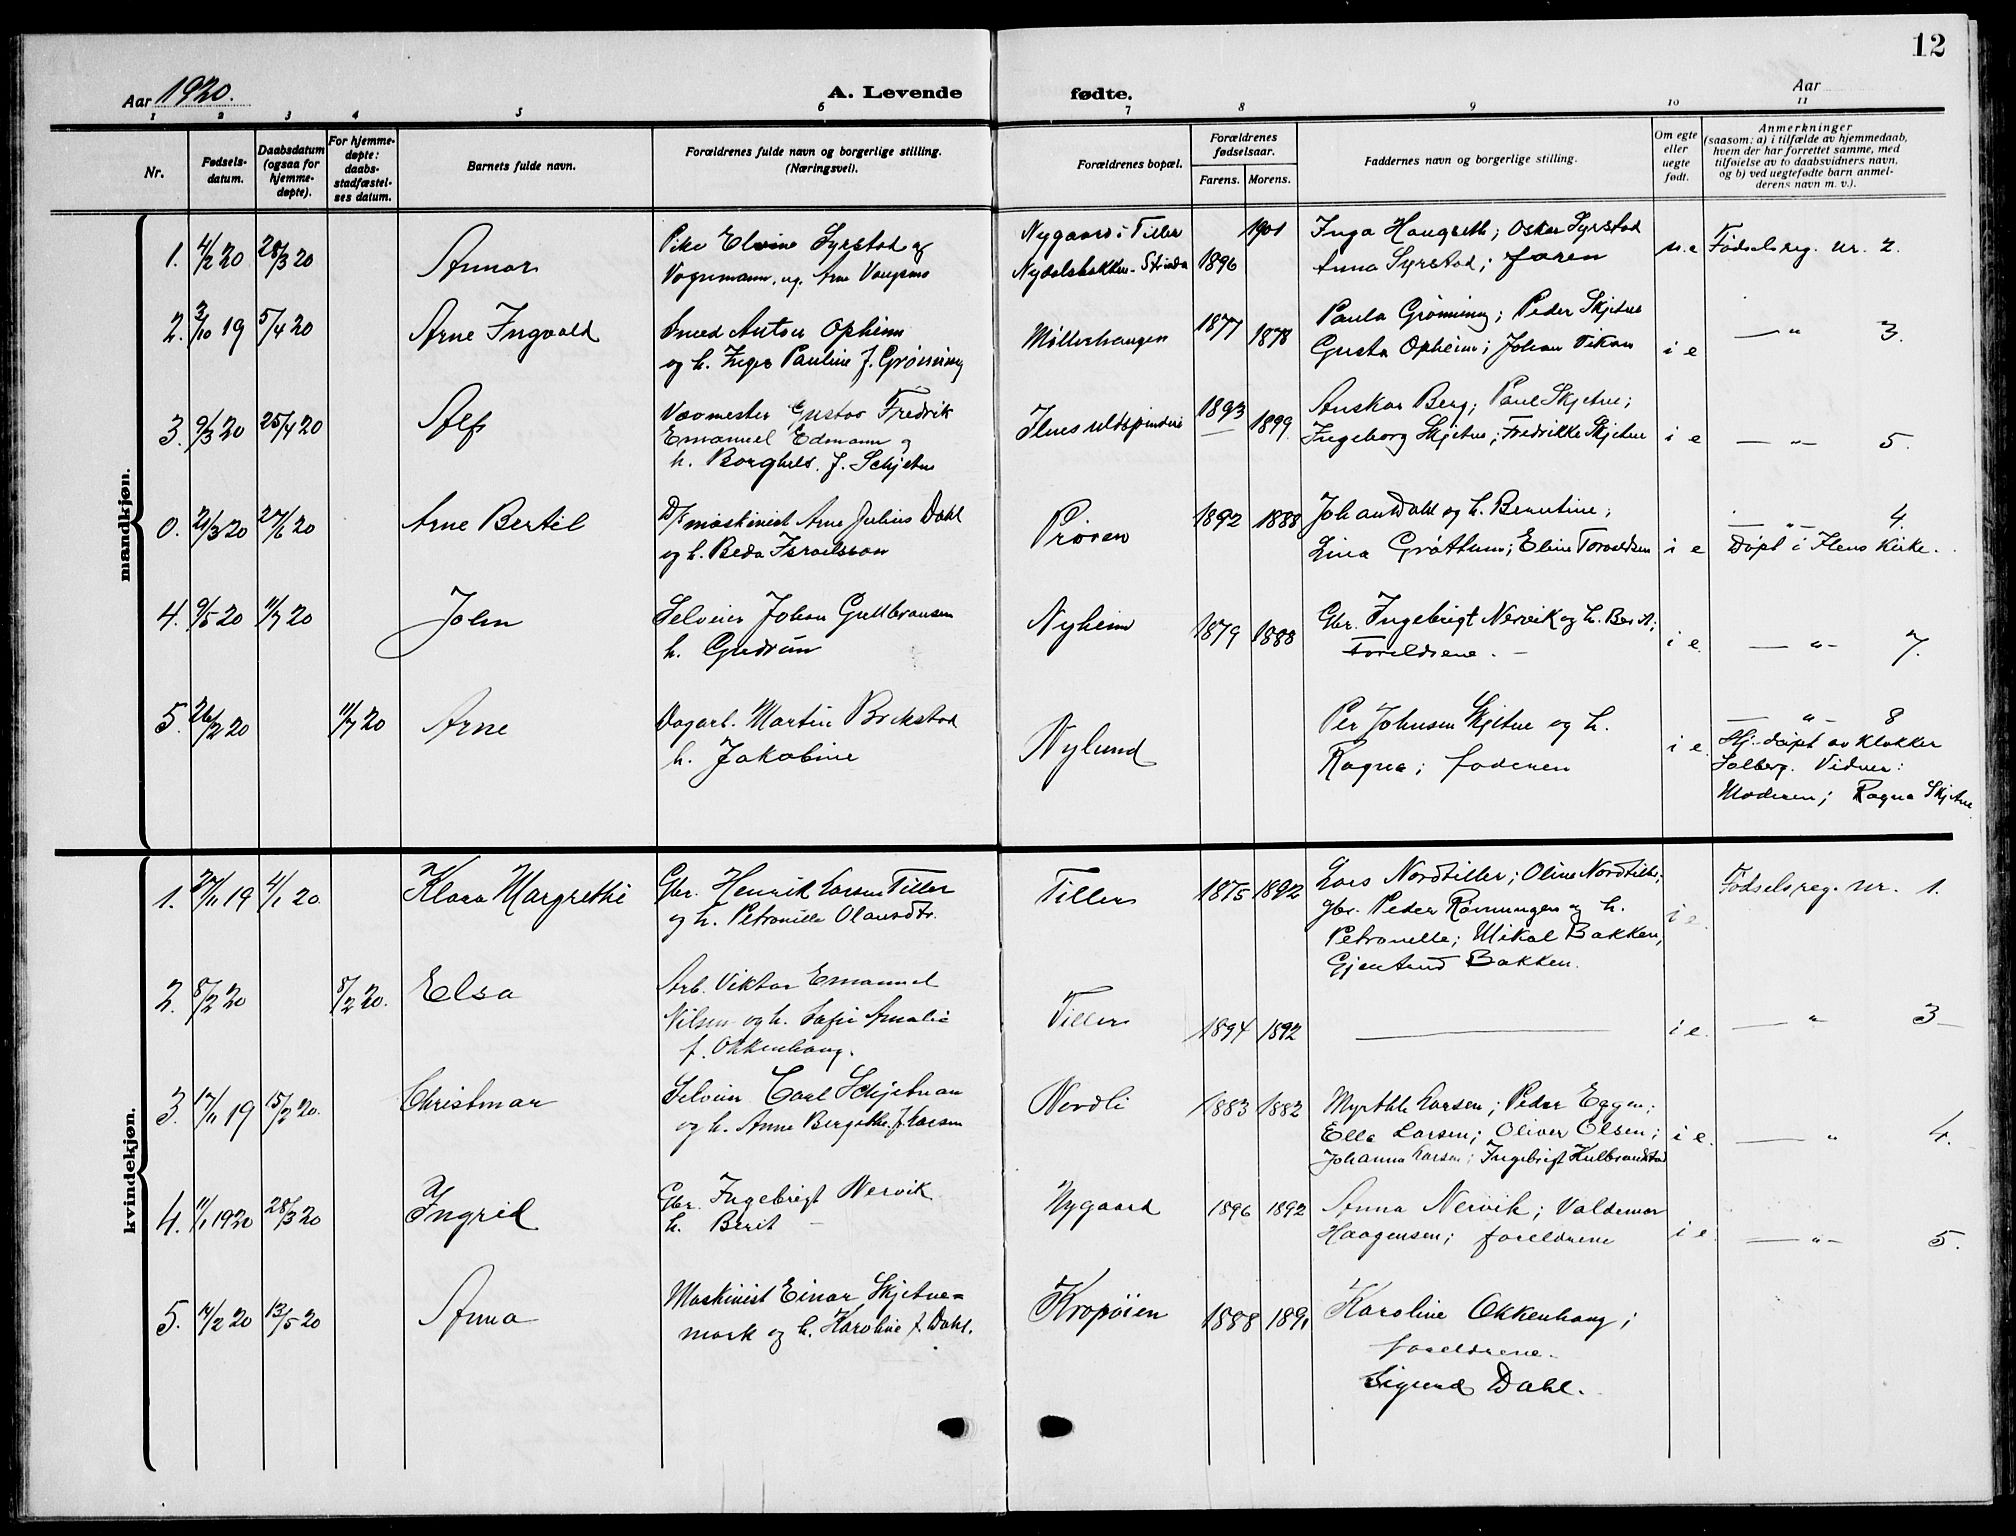 12
Aar 1920.
A. Levende fødte.
Aar
1 2 3 4 5 6 7 8 9 10 11
Nr.
Fødsels-
datum.
Daabsdatum
(ogsaa for
hjemme-
døpte).
For hjemme-
døpte:
daabs-
stadfæstel-
ses datum.
Barnets fulde navn.
Forældrenes fulde navn og borgerlige stilling.
(Næringsvei).
Forældrenes bopæl.
Forældrenes
fødselsaar.
Farens. Morens.
Faddernes navn og borgerlige stilling.
Om egte
eller
uegte
født.
Anmerkninger
(saasom: a) i tilfælde av hjemmedaab,
hvem der har forrettet samme, med
tilføielse av to daabsvidners navn,
og b) ved uegtefødte barn anmel-
derens navn m. v.).
mandkjøn.
1. 4/2 20 28/3 20 Annar
Pike Elvine Syrstad og
Vognmann, ug. Arne
Nygaard i Tiller
Nydalsbakken - Strinda
1896 1901
Inga Haugseth; Oskar Syrstad
Anna Syrstad; faren
u.e Fødselsreg. nr. 2.
2. 3/10 19 5/4 20 Arne Ingvald
Smed Anton Opheim
og h. Inger Pauline f. Grønning
Møllerhaugen
1877 1878
Paula Grønning; Peder Skjetne
Gusta Opheim; Johan
i e — " 3.
3. 9/3 20 25/4 20 Alf
Vævmester Gustav Fredrik
Emanuel Edmann og
h. Borghild f. Schjetne
Ilens uldspinderi
1893 1899
Anskar Berg; Paul Skjetne;
Ingeborg Skjetne; Fredrikke Skjetne
i e — " — 5.
0. 21/3 20 27/6 20 Arne Bertil
D/S maskinist Arne Julius Dahl
og h. Beda Israelsson
Prøven
1892 1888
Johan Dahl og h. Berntine;
Lina Grøttum; Eline Torvaldsen
i e — " — 4.
Døpt i Ilens Kirke.
4. 9/5 20 11/7 20 John
Selveier Johan Gulbransen
h. Gudrun
Nyheim
1879 1888
Gbr. Ingebrigt Nervik og h. Berit;
Foreldrene. -
i e. — " — 7.
5. 26/2 20 11/7 20 Arne
Dagarb. Martin Brekstad
h. Jakobine
Nylund
Per Johnsen Skjetne og h.
Ragna; faderen
i e. — " — 8
Hj. døpt av klokker
Solberg. Vidner:
Moderen; Ragna Skjetne
kvindekjøn.
1. 27/11 19 4/1 20 Klara Margrethe
Gbr. Henrik Larsen Tiller
og h. Petronille Olausdtr.
Tiller
1875 1892
Lars Nordtiller; Oline Nordtiller;
gbr. Peder Rønningen og h.
Petronelle; Mikal Bakken,
Gjertrud Bakken.
i e. Fødselsreg. nr. 1.
2. 8/2 20 8/2 20. Elsa
Arb. Viktor Emanuel
Nilsen og h. Sofie Amalie
f. Okkenhaug.
Tiller
1894 1892
i e. — " 3 -
3. 17/11 19 15/2 20. Christmar
Selveier Carl Schjetnan
og h. Anne Bergitte f. Larsen
Nordli
1883 1882
Myrthle Larsen; Peder Eggen;
Ella Larsen; Oliver Olsen;
Johanna Larsen; Ingebrigt Hulbrandstad
i e. — " 4.
4. 11/1 1920 28/3 20 Ingrid
Gbr. Ingebrigt Nervik
h. Berit -
Nygaard
1896 1892
Anna Nervik; Valdemar
Haagensen; foreldrene
i e. — " — 5.
5. 14/2 20 13/5 20 Anna
Maskinist Einar Skjetne=
mark og h. Karoline f. Dahl.
Kropøien
1888 1891
Karoline Okkenhaug;
foreldrene.
Sigurd Dahl.